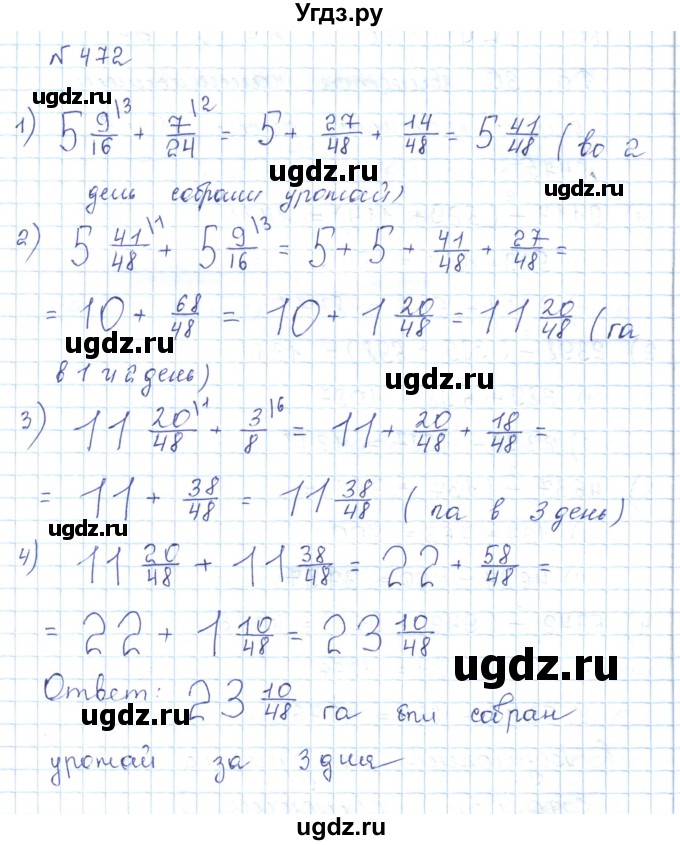 Угдз.ру
№ 472
ugdz.ru
1) 5 9/16 \3 + 7/24 \2 = 5 + 27/48 + 14/48 = 5 41/48 (во 2
ugdz.ru ugdz.ru
день собрали урожай)
2) 5 41/48 \1 + 5 9/16 \3 = 5 + 5 + 41/48 + 27/48 =
= 10 + 68/48 = 10 + 1 20/48 = 11 20/48 (га
ugdz.ru
в 1 и 2 день)
ugdz.ru
3) 11 20/48 \1 + 3/8 \6 = 11 + 20/48 + 18/48 =
= 11 + 38/48 = 11 38/48 (га в 3 день)
ugdz.ru
4) 11 20/48 + 11 38/48 = 22 + 58/48 =
= 22 + 1 10/48 = 23 10/48
ugdz.ru
Ответ: 23 10/48 га был собран
ugdz.ru
урожай за 3 дня
ugdz.ru